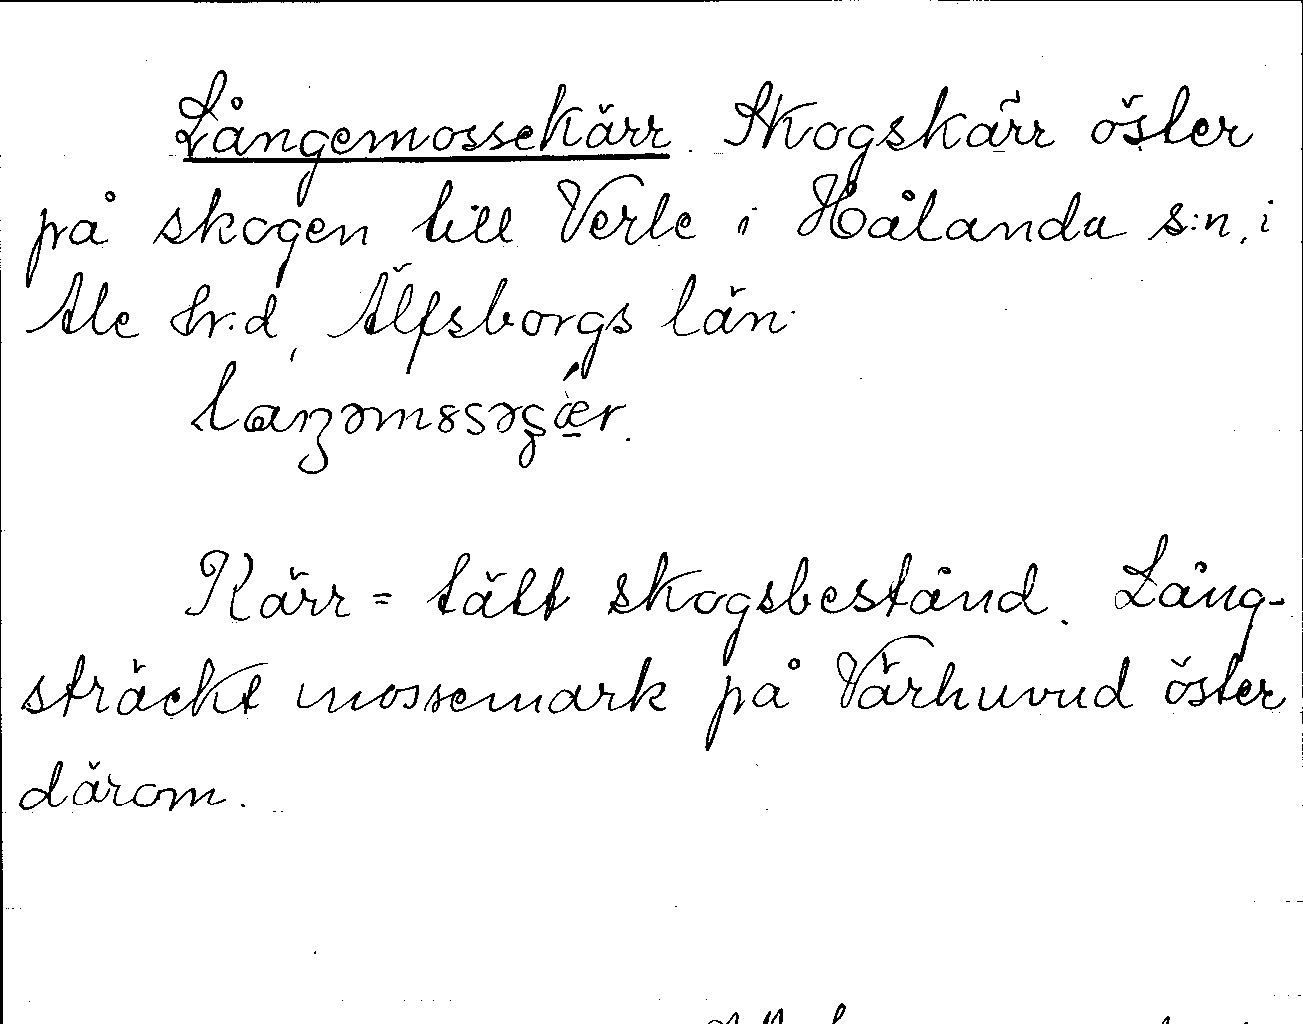 Långemossekärr. Skogskärr öster
på skogen till Verle i Hålanda s:n, i
Ale hr.d, Älfsborgs län.
Kärr = tätt skogsbestånd. Lång-
sträckt mossemark på Vårhuvud öster
därom.